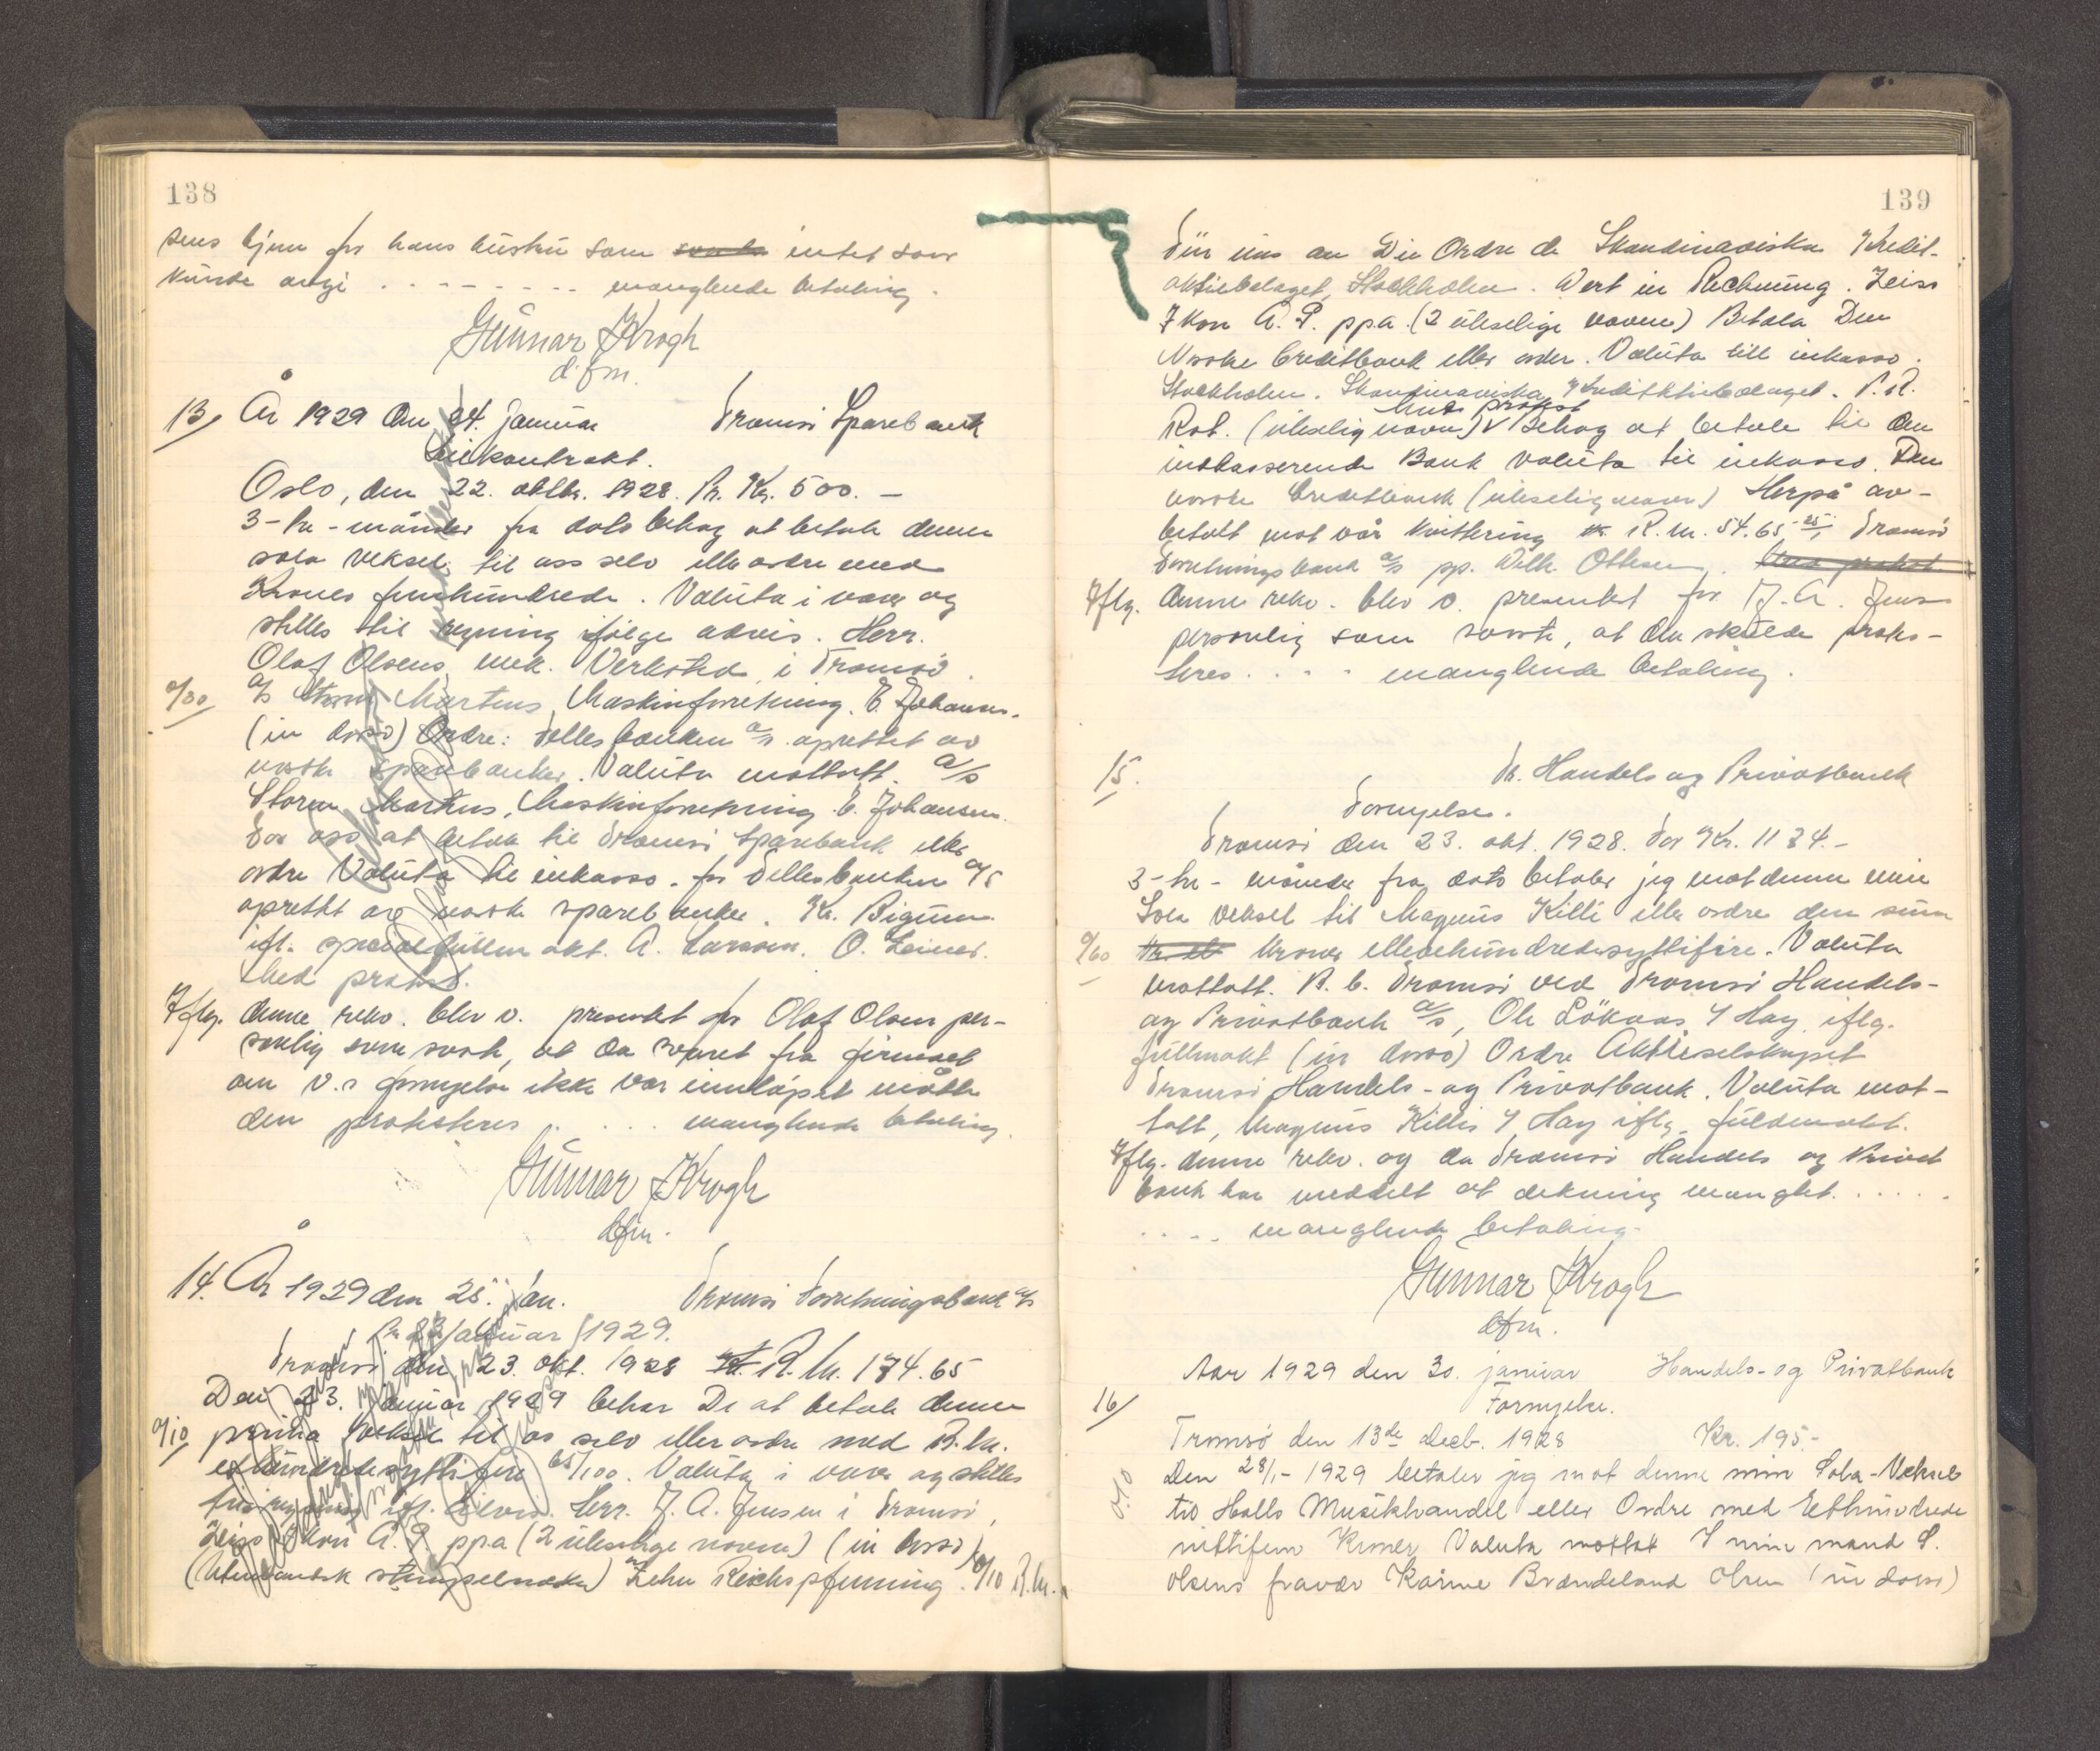 138
sens hjem for hans hustru som intet svar
kunde avgi . . . . . . . . . manglende betaling.
Gunnar Krogh
dfm.
13/ År 1929 den 24. januar Tromsö Sparebank
Oslo, den 22. oktbr. 1928. Pr. Kr. 500. –
3-tre-måneder fra dato behag at betale denne
sola veksel til oss selv eller ordre med
Kroner femhundrede. Valuta i varer og
stilles til regning ifølge advis. Herr.
Olaf Olsens, mek. Verksted i Tromsö
A/S Storm Martens, Maskinforretning. E. Johansen.
(in dosso) Ordre: Fellesbanken A/S oprettet av
norske sparebanker. Valuta mottatt. A/S
Storm Martens, Maskinforretning. E. Johansen.
For oss at betale til Tromsö Sparebank eller
ordre Valuta til inkasso. for Fellesbanken A/S
oprettet av norske sparebanker. Kr.
ifl. specialfullmakt. A. Larssen. O.
Med protest.
Iflg. denne rekv. blev v. presentert for Olaf Olsen per-
sonlig som svarte, at da svaret fra firmaet
om v.s fornyelse ikke var innløpet måtte
den protesteres . . . . manglende betaling.
Gunnar Krogh
dfm.
14. År 1929 den 25. jan. Tromsö Forretningsbank A/S
Pr 23 januar 1929.
Tromsö den 23. okt. 1928 R.M. 174.65
Den 23. januar 1929 behar De at betale denne
prima veksel til os selv eller ordre med R.M.
etthundredesyttifire 65/100. Valuta i varer og stilles
til regning ifl. advis. Herr. J. A. Jensen i Tromsö,
Zeiss Ikon A.G. ppa (2 uleselige navne) (in dosso)
(Utenlandsk stempelmerke) Zehn Reichspfenning. 0/10 R.M.
139
Für uns an Die Ordre de Skandinaviska Kredit-
aktiebolaget, Stockholm. Wert in Rechnung. Zeiss
Ikon A.G. ppa. (2 uleselige navne) Betala Den
Norske Creditbank eller order. Valuta till inkasso.
Stockholm. Skandinaviska Kreditaktiebolaget.
Med protest
(uleselig navn) V Behag at betale til den
innkasserende Bank valuta til inkasso. Den
norske Creditbank (uleselig navn) Herpå av-
betalt mot vår kvittering R.M. 54.65 Tromsö
Forretningsbank A/S pp. Wilh. Ottesen. Med protest.
Iflg. denne rekv. blev v. presentert for J. A. Jensen
personlig som svarte, at den skulde protes-
teres . . . . manglende betaling.
15. Tr. Handels og Privatbank
Fornyelse.
Tromsö den 23. okt. 1928. For Kr. 1174.–
3-tre- måneder fra dato betaler jeg mot denne min
Sola veksel til Magnus Killi eller ordre den sum
0/60 kroner ellevehundredesyttifire. Valuta
mottatt. A. C. Tromsö ved Tromsö Handels-
og Privatbank A/S, Ole Lökaas & Hay iflg.
fullmakt (in dosso) Ordre Aktieselskapet
Tromsö Handels- og Privatbank. Valuta mot-
tatt, Magnus Killis & Hay iflg. fuldmakt.
Iflg. denne rekv. og da Tromsö Handels og Privat
bank har meddelt at dekning manglet. . . . . .
. . . . manglende betaling.
Gunnar Krogh
dfm.
Aar 1929 den 30. januar Handels- og Privatbank
16/ Fornyelse.
Tromsö den 13de decb. 1928 Kr. 195.-
0.10 Den 28/1- 1929 betaler jeg mot denne min Sola-Veksel
til Halls Musikhandel eller Ordre med Ethundrede
nittifem Kroner Valuta mottat I min mand S.
Olsens fravær Karine Brændeland Olsen (in dosso)